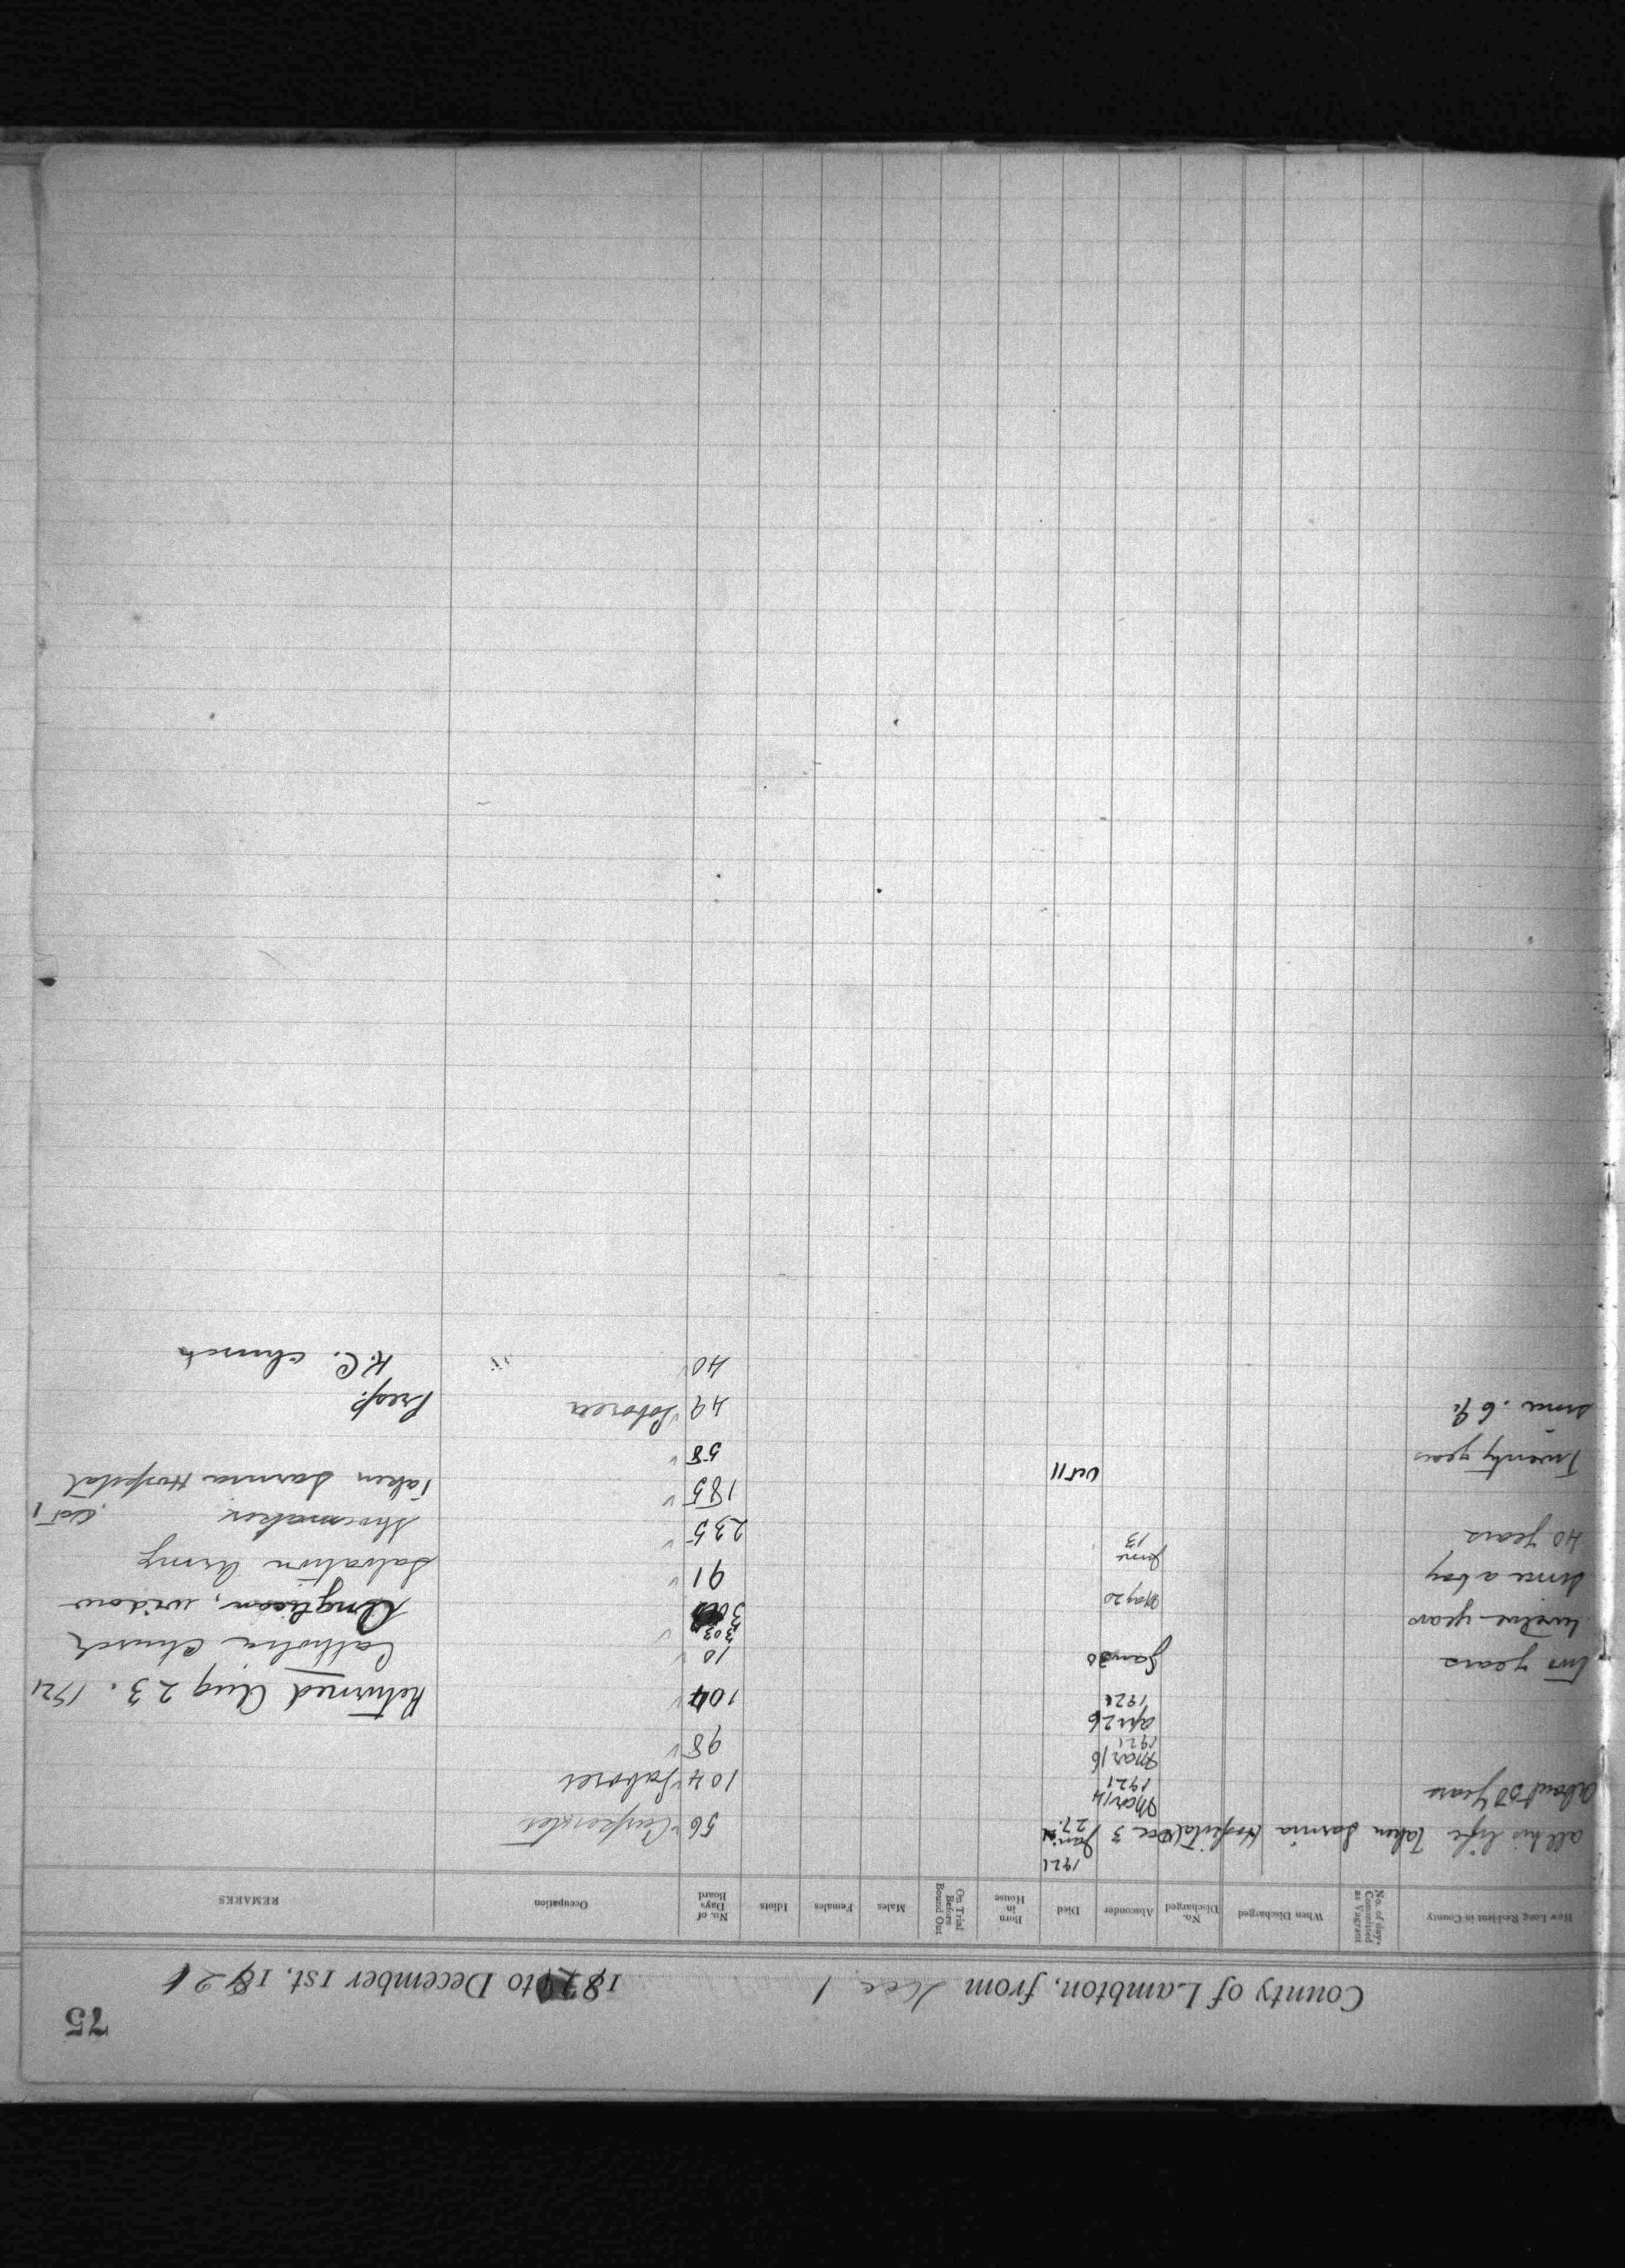 75
County of Lambton, from Dec. 1 1920 to December 1st, 1921
How Long Resident in County No. of days Committed as Vagrant When Discharged No. Discharged Absconder Died Born in House On Trial Before Bound Out Males Females Idiots No. of Days Board Occupation REMARKS
all his life Taken Sarnia Hospital Dec 3 1921 Jan 27. 56 Carpenter
about 50 years Mar 14 1921 104 Laborer
Mar 16 1921 98
Apr 26 1921 104 Returned Aug 23. 1921
two years Jan 30 10 Catholic Church
twelve years 303 Anglican, widow
since a boy May 20 91 Salvation Army
40 years June 13 235 Shoemaker
Oct 11 185 Taken Sarnia Hospital Oct 1
Twenty years 58
49 Laborer Presp.
40 " R.C. Church